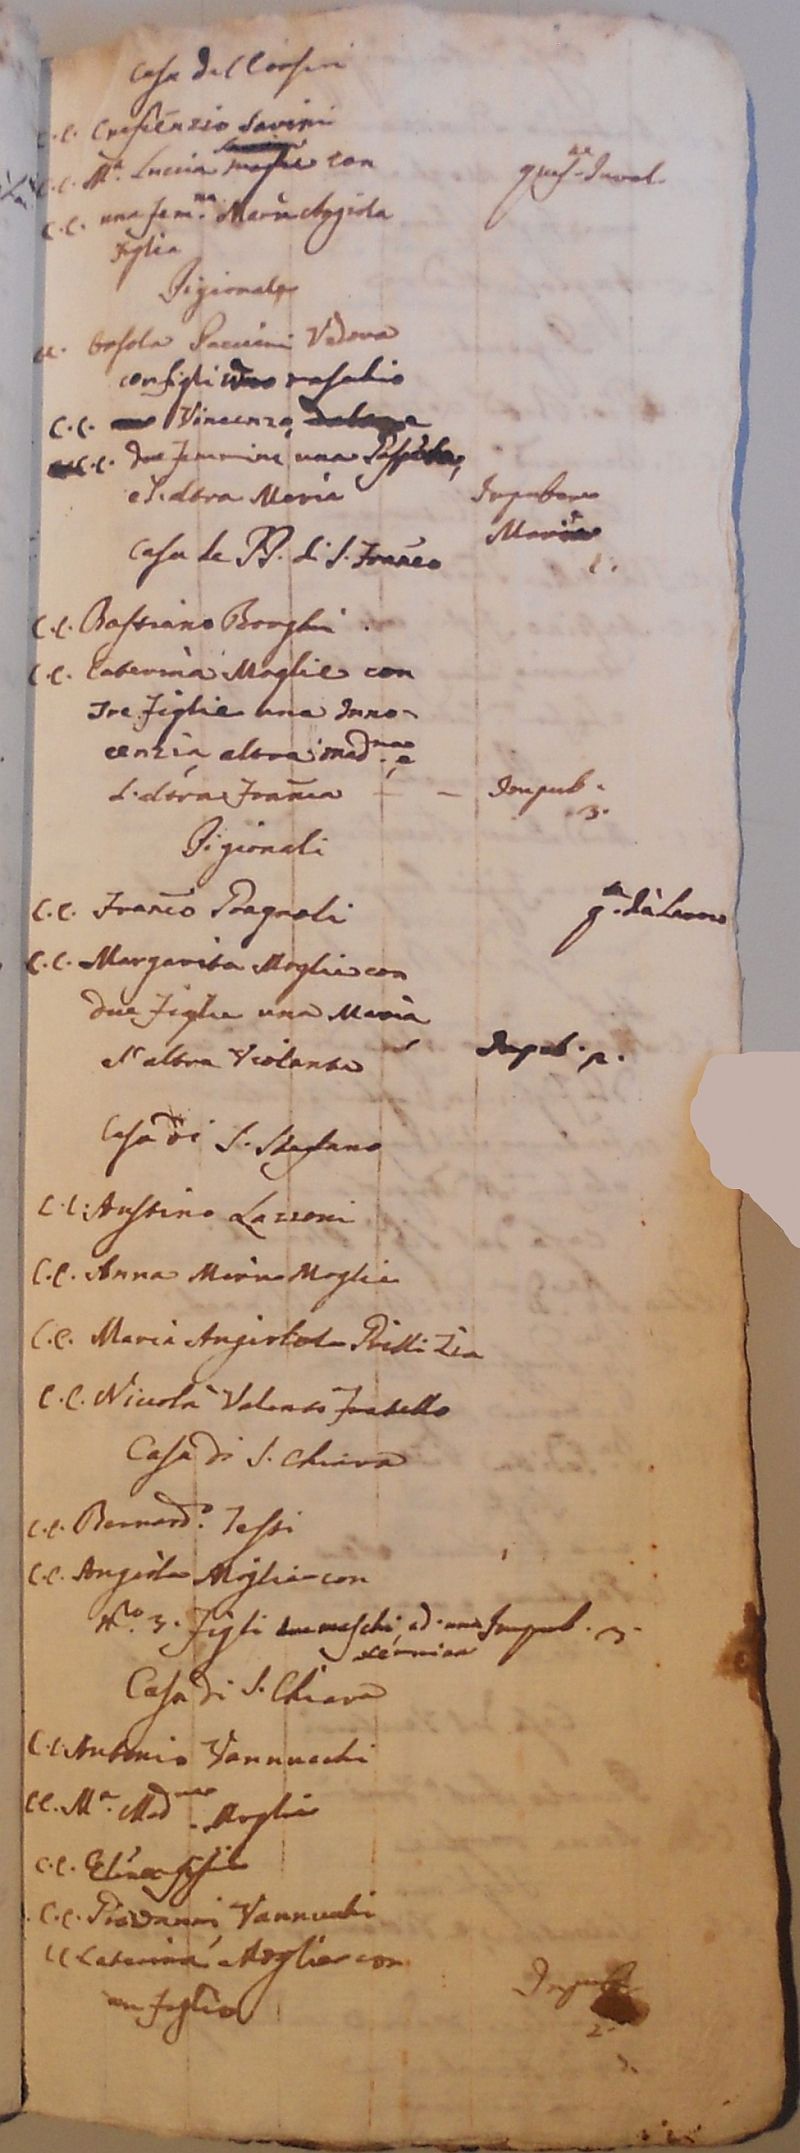 Casa del Corsini
C.C. Cresienzio Savini
C.C. M.ª Luccia moglie con
ques.ne
C.C. una fem.na Maria Angiola
figlia
Pigionale
cc. Orsola Paccini Vedova
con figli uno maschio
C.C. Vincenzo
C.C. due femmine una
e l'altra Maria Impubere
Maria
Casa de PP. di S. Franco
C.C. Bastiano Borghi
C.C. Caterina Moglie con
tre figlie una Inno-
cenzia, altra Mad.na e
l'altra Franca - - Impub.
3.
Pigionali
C.C. Franco Pagnoli
C.C. Margarita Moglie con
due figlie una Maria
e l'altra Violante Impub. 2.
Casa di S. Stefano
C.C. Austino Lazzoni
C.C. Anna Maria Moglie
C.C. Maria Angiola Zia
C.C. Niccola Valente fratello
Casa di S. Chiara
C.C. Bernard.o Tessi
C.C. Angiola Moglie con
N.o 3. figli due maschi, ed una Impub. 3.
femina
Casa di S. Chiara
C.C. Antonio Vannucchi
CC. M.ª Mad.na Moglie
C.C. figlia
C.C. Giovanni Vannucchi
CC Caterina Moglie con
un figlio Impub
2.